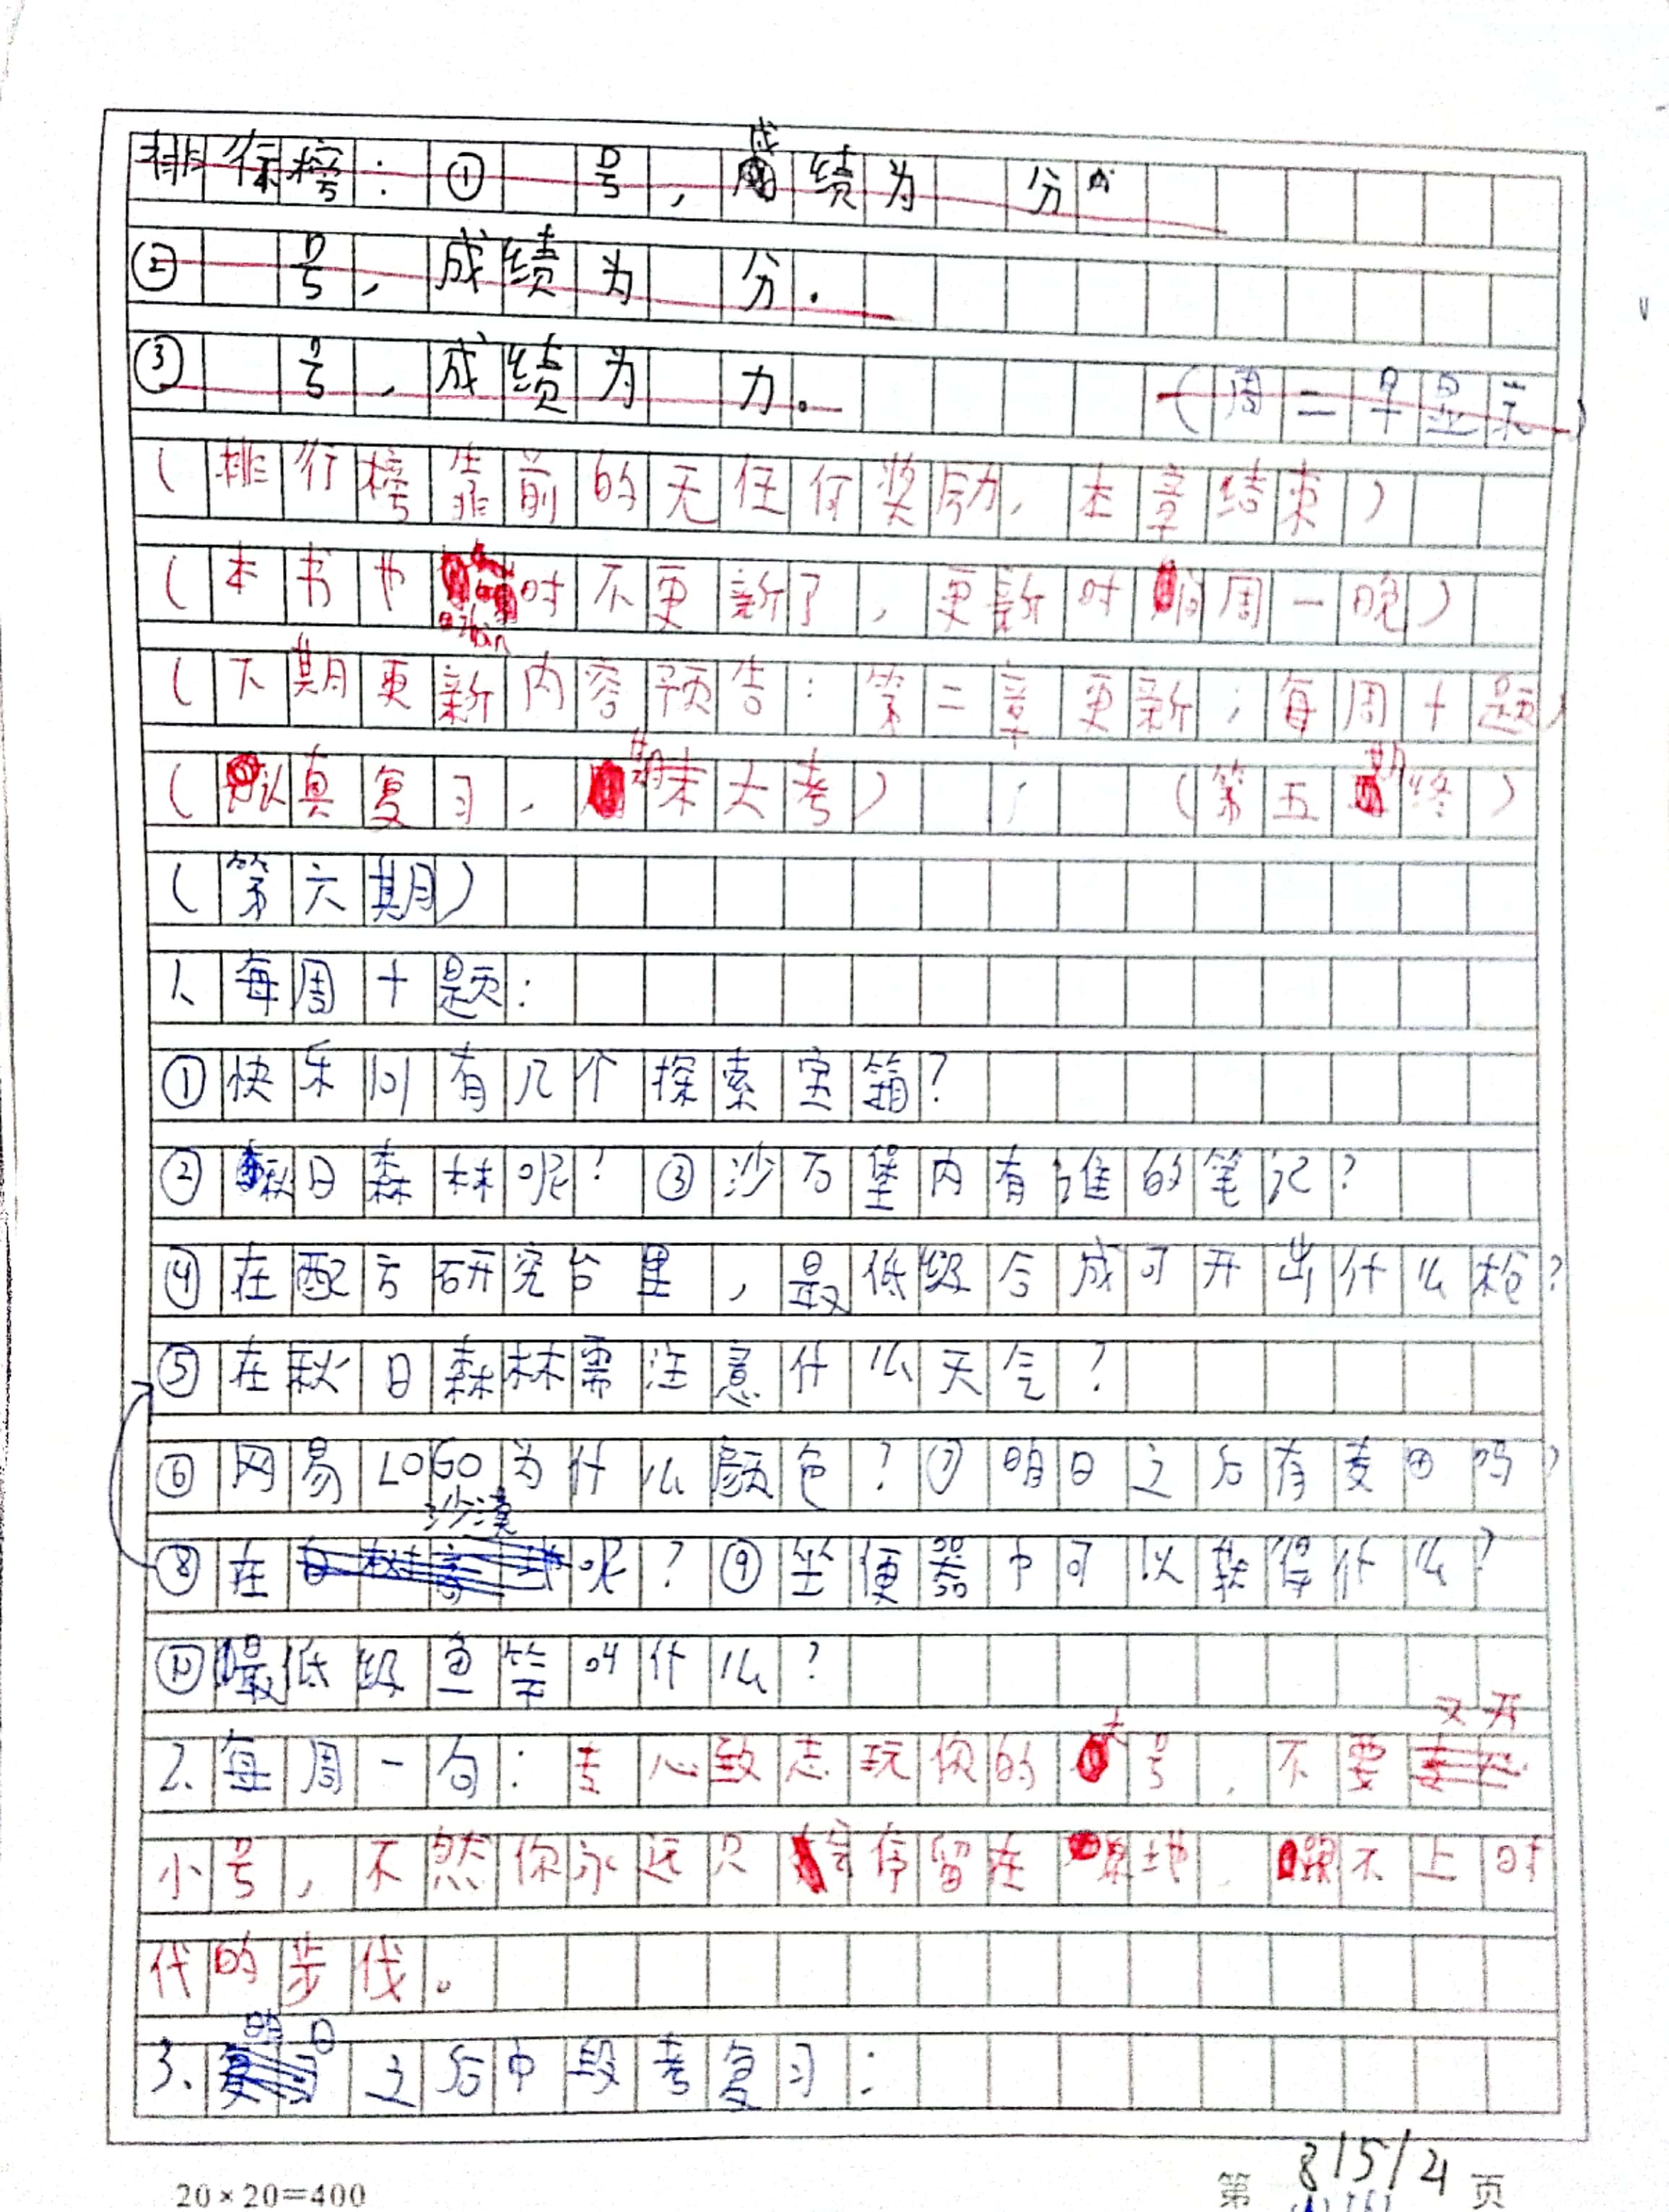 排行榜：① 号，成绩为 分
② 号，成绩为 分.
③ 号，成绩为 力。（周二早显示）
（排行榜靠前的无任何奖励，本章结束）
（本书也 时不更新了，更新时 周一晚）
（下期更新内容预告：第二章更新；每周十题）
（认真复习，期末大考） （第五期终）
（第六期）
1、每周十题：
①快乐101有几个探索宝箱？
②秋日森林呢？③沙石堡内有谁的笔记？
④在配方研究台里，最低级合成可开出什么枪？
⑤在秋日森林需注意什么天气？
⑥网易LOGO为什么颜色？⑦明日之后有麦田吗？
⑧在沙漠呢？⑨坐便器中可以获得什么？
⑩最低级鱼竿叫什么？
2.每周一句：专心致志玩你的大号，不要又开
小号，不然你永远只会停留在原地，跟不上时
代的步伐。
3.明日之后中段考复习：
20×20=400
第 页